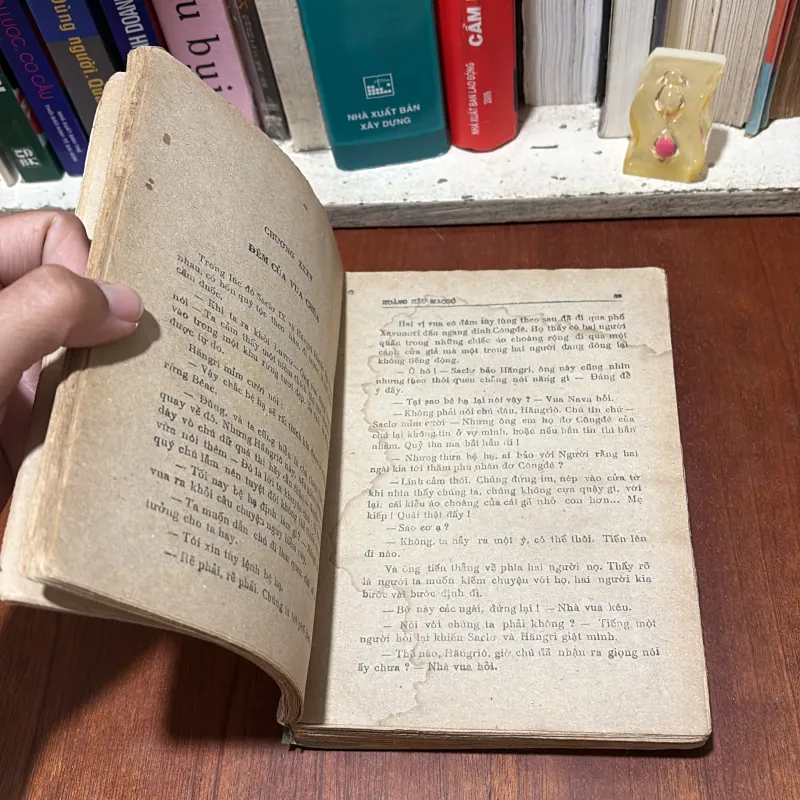 LƯỢC, CƠ CẤU
ùng người. Qu
bui
NHÀ XUẤT BẢN
XÂY DỰNG
CẨM
NHÀ XUẤT BẢN LAO ĐỘNG
CHƯƠNG XXXV
ĐÊM CỦA VUA CHÚA
Trong lúc đó Saclơ IX và
nhau, có bốn quý tộc theo
cầm đuốc.
— Khi ta ra khỏi
nói — Ta cảm thấy một
vào trong một khu rừng tươi đẹp
được tự do.
Hăngri mỉm cười nói.
— Vậy chắc bệ hạ sẽ rất thích
rừng Bêac.
— Đúng, và ta cũng hiểu là chú
quay về đó. Nhưng Hăngriô này, nếu
đây vò chú dữ quá thì hãy cẩn thận
vừa nói thêm — Đó là lời ta khuyên
quý chú lắm nên tuyệt đối không
— Tối nay bệ hạ định làm gì?
vua ra khỏi câu chuyện nguy hiểm này
— Ta muốn dẫn chú đi làm quen
tưởng cho ta hay.
— Tôi xin tùy lệnh bệ hạ.
— Rẽ phải, rẽ phải. Chúng ta
HOÀNG HẬU MACGÔ
Hai vị vua có đám tùy tùng theo sau đã đi qua phố
Xavonơri đầu ngang dinh Côngđê. Họ thấy có hai người
quấn trong những chiếc áo choàng rộng đi qua một
cánh cửa giả mà một trong hai người đang đóng lại
không tiếng động.
— Ô hô! — Saclơ bảo Hăngri, ông này cũng nhìn
nhưng theo thói quen chẳng nói năng gì — Đáng để
ý đấy.
— Tại sao bệ hạ lại nói vậy? — Vua Nava hỏi.
— Không phải nói chú đâu, Hăngriô. Chú tin chứ —
Saclơ mỉm cười — Nhưng ông em họ đơ Côngđê của
chú lại không tin ở vợ mình, hoặc nếu hắn tin thì hắn
nhầm. Quỷ tha ma bắt hắn đi!
— Nhưng thưa bệ hạ, ai bảo với Người rằng hai
ngài kia tới thăm phu nhân đơ Côngđê?
— Linh cảm thôi. Chúng đứng im, nép vào cửa từ
khi nhìn thấy chúng ta, chúng không cựa quậy gì, với
lại, cái kiểu áo choàng của cái gã nhỏ con hơn... Mẹ
kiếp! Quái thật đấy!
— Sao cơ ạ?
— Không, ta nảy ra một ý, có thế thôi. Tiến lên
đi nào.
Và ông tiến thẳng về phía hai người nọ. Thấy rõ
là người ta muốn kiếm chuyện với họ, hai người kia
bước vài bước định đi.
— Bớ này các ngài, đứng lại! — Nhà vua kêu.
— Nói với chúng ta phải không? — Tiếng một
người hỏi lại khiến Saclơ và Hăngri giật mình.
— Thế nào, Hăngriô, giờ chú đã nhận ra giọng nói
ấy chưa? — Nhà vua hỏi.